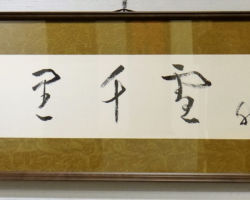 雲千里